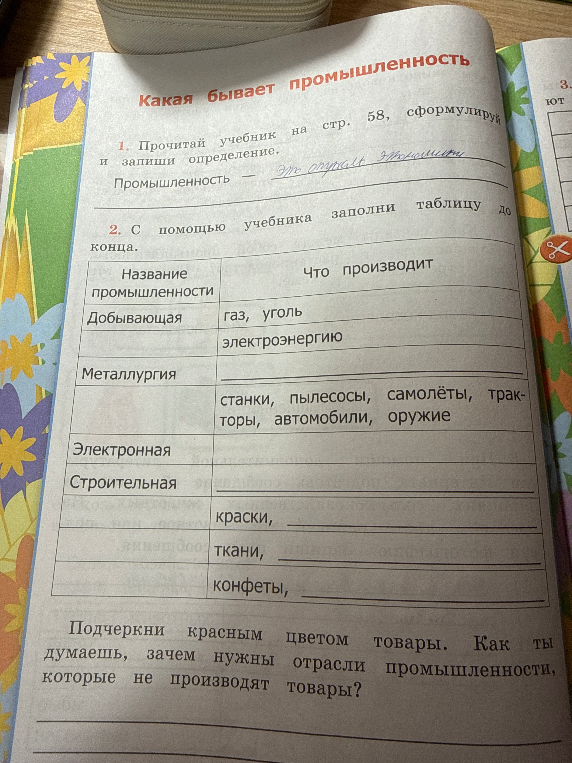 Какая бывает промышленность
1. Прочитай учебник на стр. 58, сформулируй
и запиши определение.
Промышленность — это отрасль экономики
2. С помощью учебника заполни таблицу до
конца.
Название
промышленности
Что производит
Добывающая
газ, уголь
электроэнергию
Металлургия
станки, пылесосы, самолёты, трак-
торы, автомобили, оружие
Электронная
Строительная
краски,
ткани,
конфеты,
Подчеркни красным цветом товары. Как ты
думаешь, зачем нужны отрасли промышленности,
которые не производят товары?
3.
ют